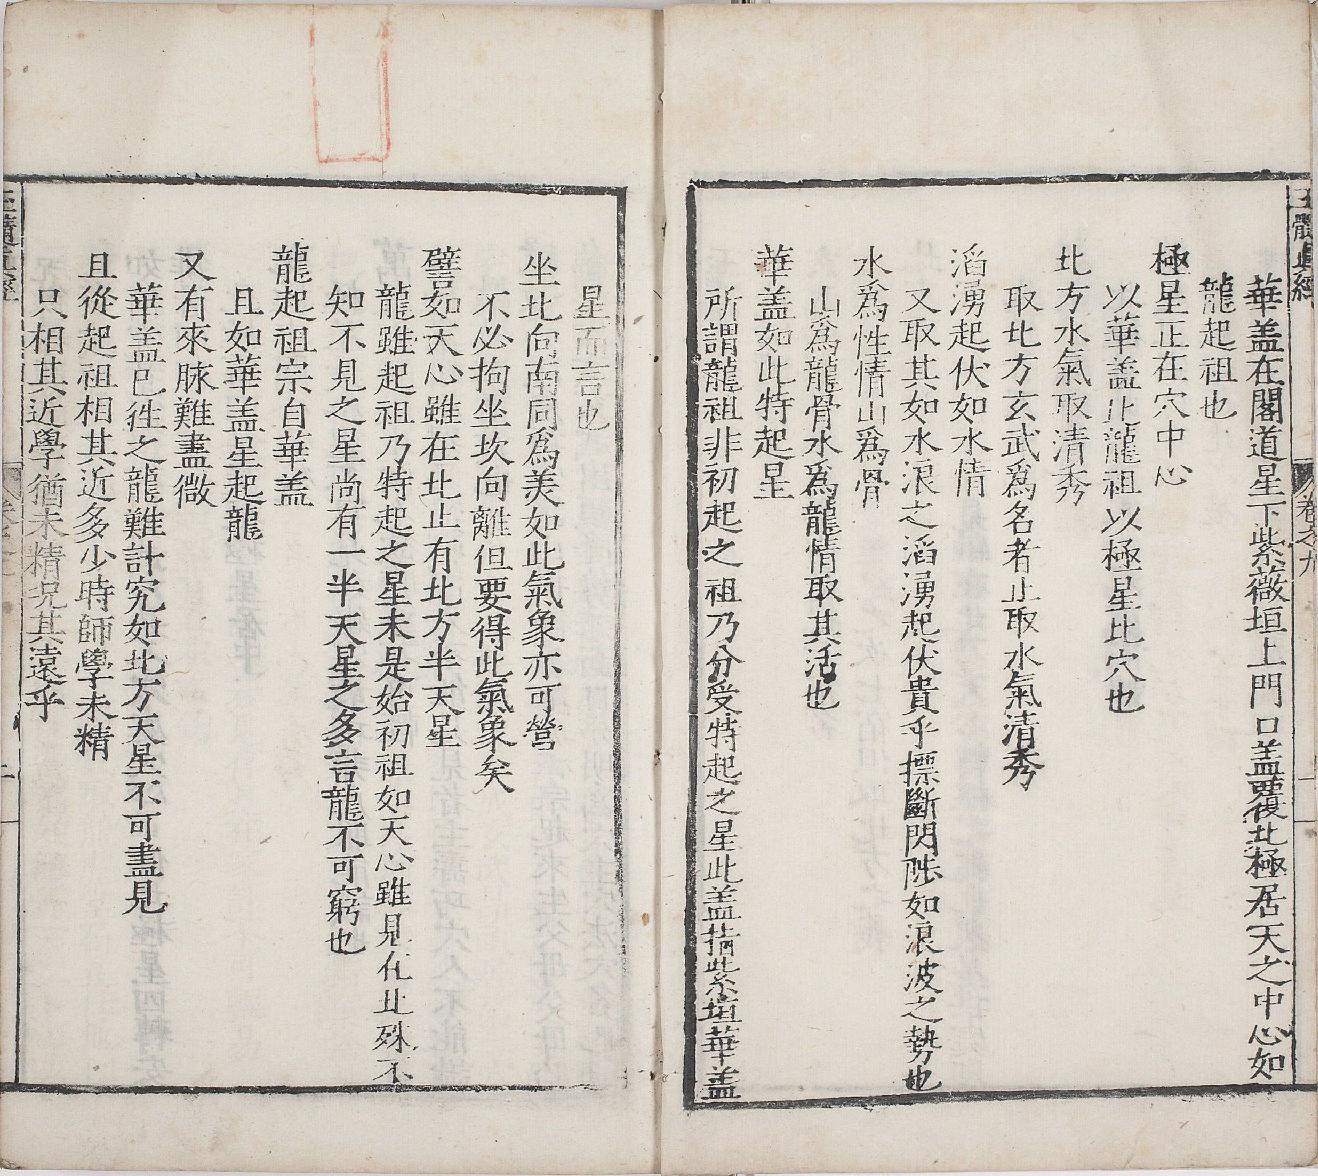 華盖在閣道星下紫薇垣上門口盖覆北極居天之中心如
龍起祖也
極星正在穴中心
以華盖比龍祖以極星比穴也
北方水氣取清秀
取北方玄武爲名者止取水氣清秀
滔湧起伏如水情
又取其如水浪之滔湧起伏貴乎摽斷閃陟如浪波之勢也
水爲性情山爲骨
山爲龍骨水爲龍情取其活也
華盖如此特起星
所謂龍祖非初起之祖乃分受特起之星此盖指紫垣華盖
星而言也
坐北向南同爲美如此氣象亦可營
不必拘坐坎向離但要得此氣象矣
譬如天心雖在北止有北方半天星
龍雖起祖乃特起之星未是始初祖如天心雖見在北殊不
知不見之星尚有一半天星之多言龍不可窮也
龍起祖宗自華盖
且如華盖星起龍
又有來脉難盡微
華盖巳徃之龍難計究如北方天星不可盡見
且從起祖相其近多少時師學未精
只相其近學猶未精况其遠乎
玉髓真經
卷之九